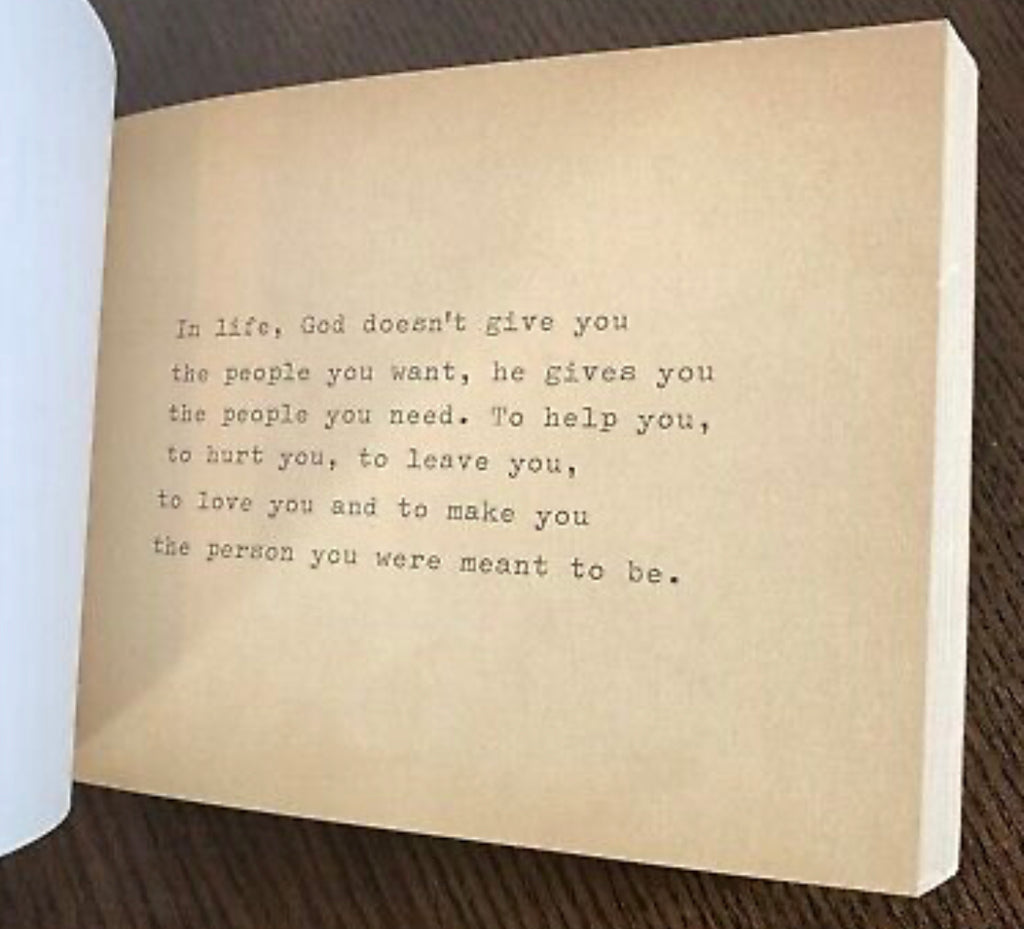 In life, God doesn't give you
the people you want, he gives you
the people you need. To help you,
to hurt you, to leave you,
to love you and to make you
the person you were meant to be.